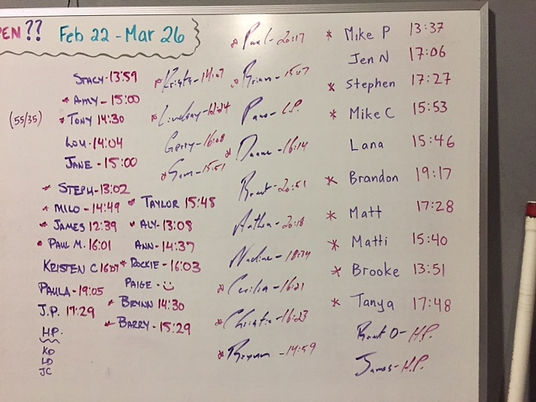 PEN?? Feb 22 - Mar 26
STACY - 13:59
* AMY - 15:00
(55/35)
* TONY 14:30
LOU - 14:04
JANE - 15:00
* STEPH - 13:02
* MILO - 14:49
* JAMES 12:39
* PAUL M. 16:01
KRISTEN C
PAULA - 19:05
J.P. 17:29
H.P.
KD
LD
JC
* TAYLOR 15:48
* ALY - 13:08
ANN - 14:37
* ROCKIE - 16:03
PAIGE -
* BRYNN 14:30
* BARRY - 15:29
* Lindsay
Gerry - 16:08
* Sam - 15:51
* Paul - 20:17
* Brian - 15:07
Pam -
* Duane - 16:14
Brent - 20:51
Nadine - 18:34
* Cecilia - 16:21
* Christie - 16:23
* Bryan - 14:59
* Mike P 13:37
Jen N 17:06
* Stephen 17:27
* Mike C 15:53
Lana 15:46
* Brandon 19:17
* Matt 17:28
* Matti 15:40
* Brooke 13:51
* Tanya 17:48
Brent O - H.P.
James - H.P.